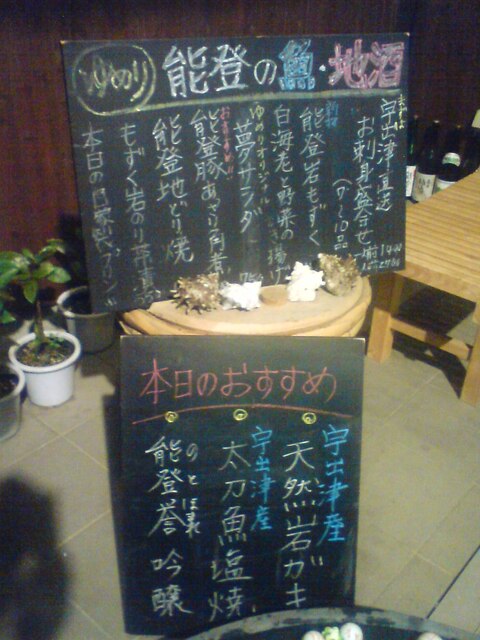 ゆめり
能登の魚・地酒
宇出津直送
お刺身盛合せ
(7〜10品)
能登岩もずく
白海老と野菜のかき揚げ
ゆめりオリジナル
夢サラダ
おすすめ!!
能登豚あっさり角煮
能登地どり焼
もずく岩のり茶漬
本日の自家製プリン
本日のおすすめ
宇出津産
天然岩ガキ
宇出津産
太刀魚塩焼
のとほまれ
能登誉 吟醸